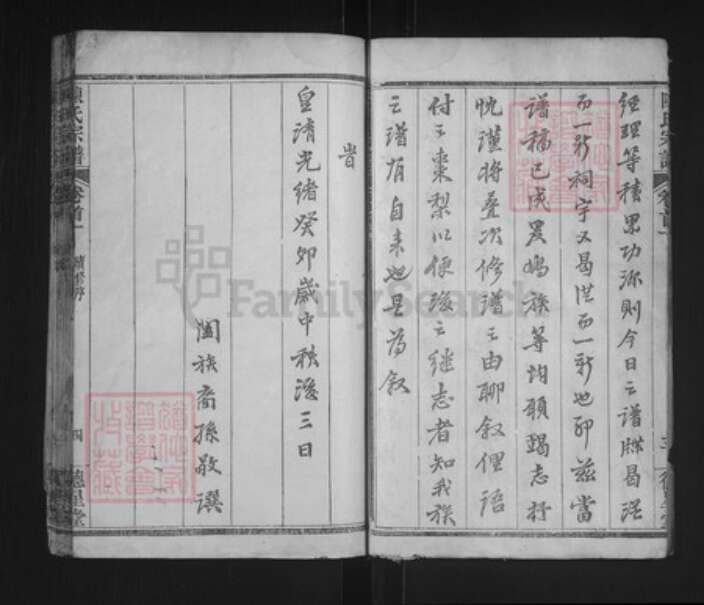 經理等積累功深則今日之譜牒曷從
而一新祠宇又曷從而一新也耶茲當
譜稿已成累嬎族等均願竭志抒
忱謹將叠次修譜之由聊叙俚語
付之棗梨以便後之継志者知我族
之譜有自来也是為叙
旹
皇清光緒癸卯歲中秋後三日
闔族裔孫敬譔
陳氏宗譜
卷首一
續修序
四
德星堂
FamilySearch